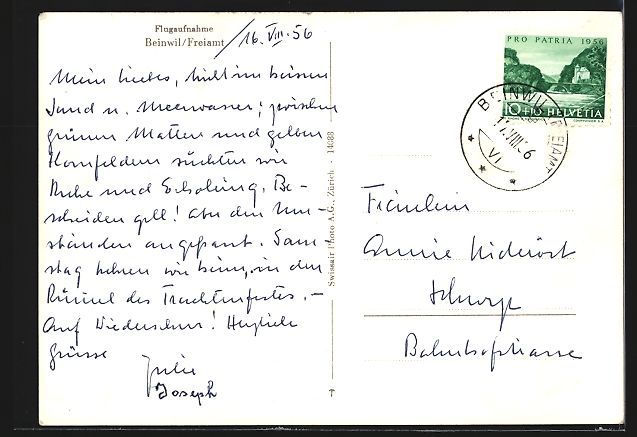 Flugaufnahme
Beinwil/Freiamt
16. VIII. 56
Mein liebes, nicht im heissen
Sand u. Meerwasser; zwischen
grünen Matten und gelben
Kornfeldern suchten wir
Ruhe und Erholung. Be-
scheiden gell! Aber den Um-
ständen angepasst. Sams-
tag kehren wir heim, in den
Rummel des Trachtenfestes. –
Auf Wiedersehen! Herzliche
Grüsse
Julie
Joseph
Swissair Photo A.G., Zürich - 14088
PRO PATRIA 1956
10+10 HELVETIA
BEINWIL (FREIAMT)
VIII.56
VI
Fräulein
Annie Nideröst
Schwyz
Bahnhofstrasse